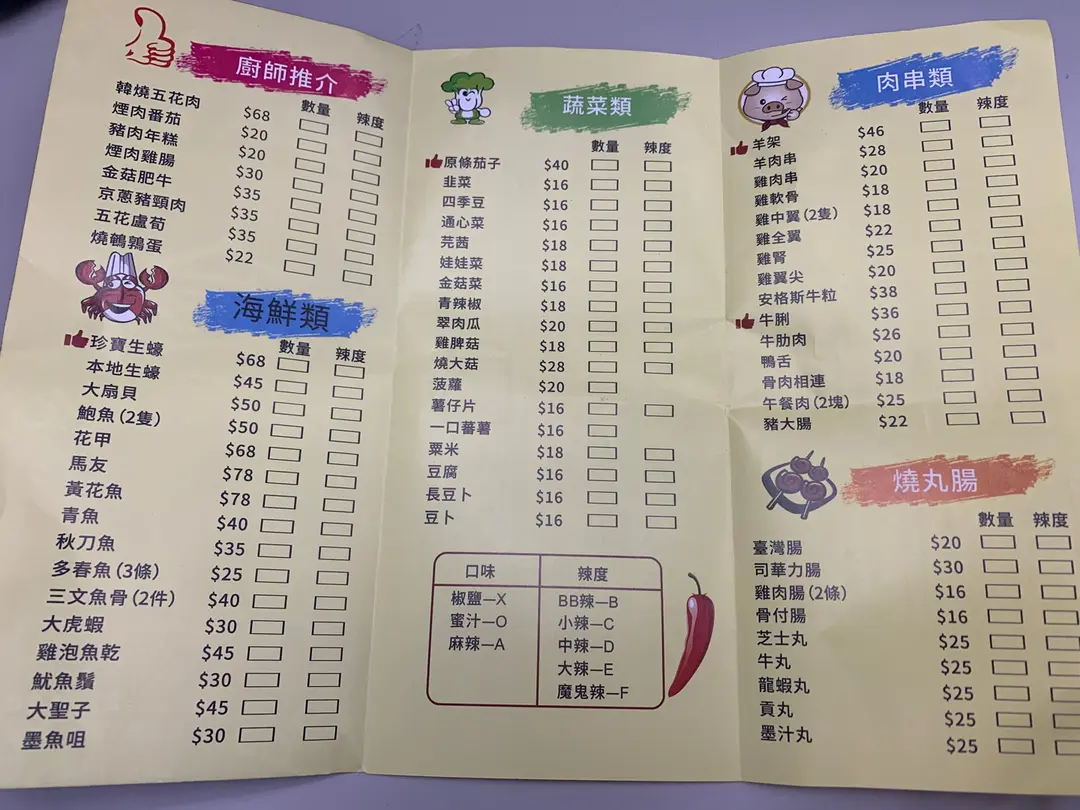 廚師推介
數量 辣度
韓燒五花肉 $68
煙肉番茄 $20
豬肉年糕 $20
煙肉雞腸 $30
金菇肥牛 $35
京蔥豬頸肉 $35
五花盧荀 $35
燒鵪鶉蛋 $22
海鮮類
數量 辣度
珍寶生蠔 $68
本地生蠔 $45
大扇貝 $50
鮑魚(2隻) $50
花甲 $68
馬友 $78
黃花魚 $78
青魚 $40
秋刀魚 $35
多春魚(3條) $25
三文魚骨(2件) $40
大虎蝦 $30
雞泡魚乾 $45
魷魚鬚 $30
大聖子 $45
墨魚咀 $30
蔬菜類
數量 辣度
原條茄子 $40
韭菜 $16
四季豆 $16
通心菜 $16
芫茜 $18
娃娃菜 $18
金菇菜 $16
青辣椒 $18
翠肉瓜 $20
雞脾菇 $18
燒大菇 $28
菠蘿 $20
薯仔片 $16
一口蕃薯 $16
粟米 $18
豆腐 $16
長豆卜 $16
豆卜 $16
口味 辣度
椒鹽—X BB辣—B
蜜汁—O 小辣—C
麻辣—A 中辣—D
大辣—E
魔鬼辣—F
肉串類
數量 辣度
羊架 $46
羊肉串 $28
雞肉串 $20
雞軟骨 $18
雞中翼(2隻) $18
雞全翼 $22
雞腎 $25
雞翼尖 $20
安格斯牛粒 $38
牛脷 $36
牛肋肉 $26
鴨舌 $20
骨肉相連 $18
午餐肉(2塊) $25
豬大腸 $22
燒丸腸
數量 辣度
臺灣腸 $20
司華力腸 $30
雞肉腸(2條) $16
骨付腸 $16
芝士丸 $25
牛丸 $25
龍蝦丸 $25
貢丸 $25
墨汁丸 $25